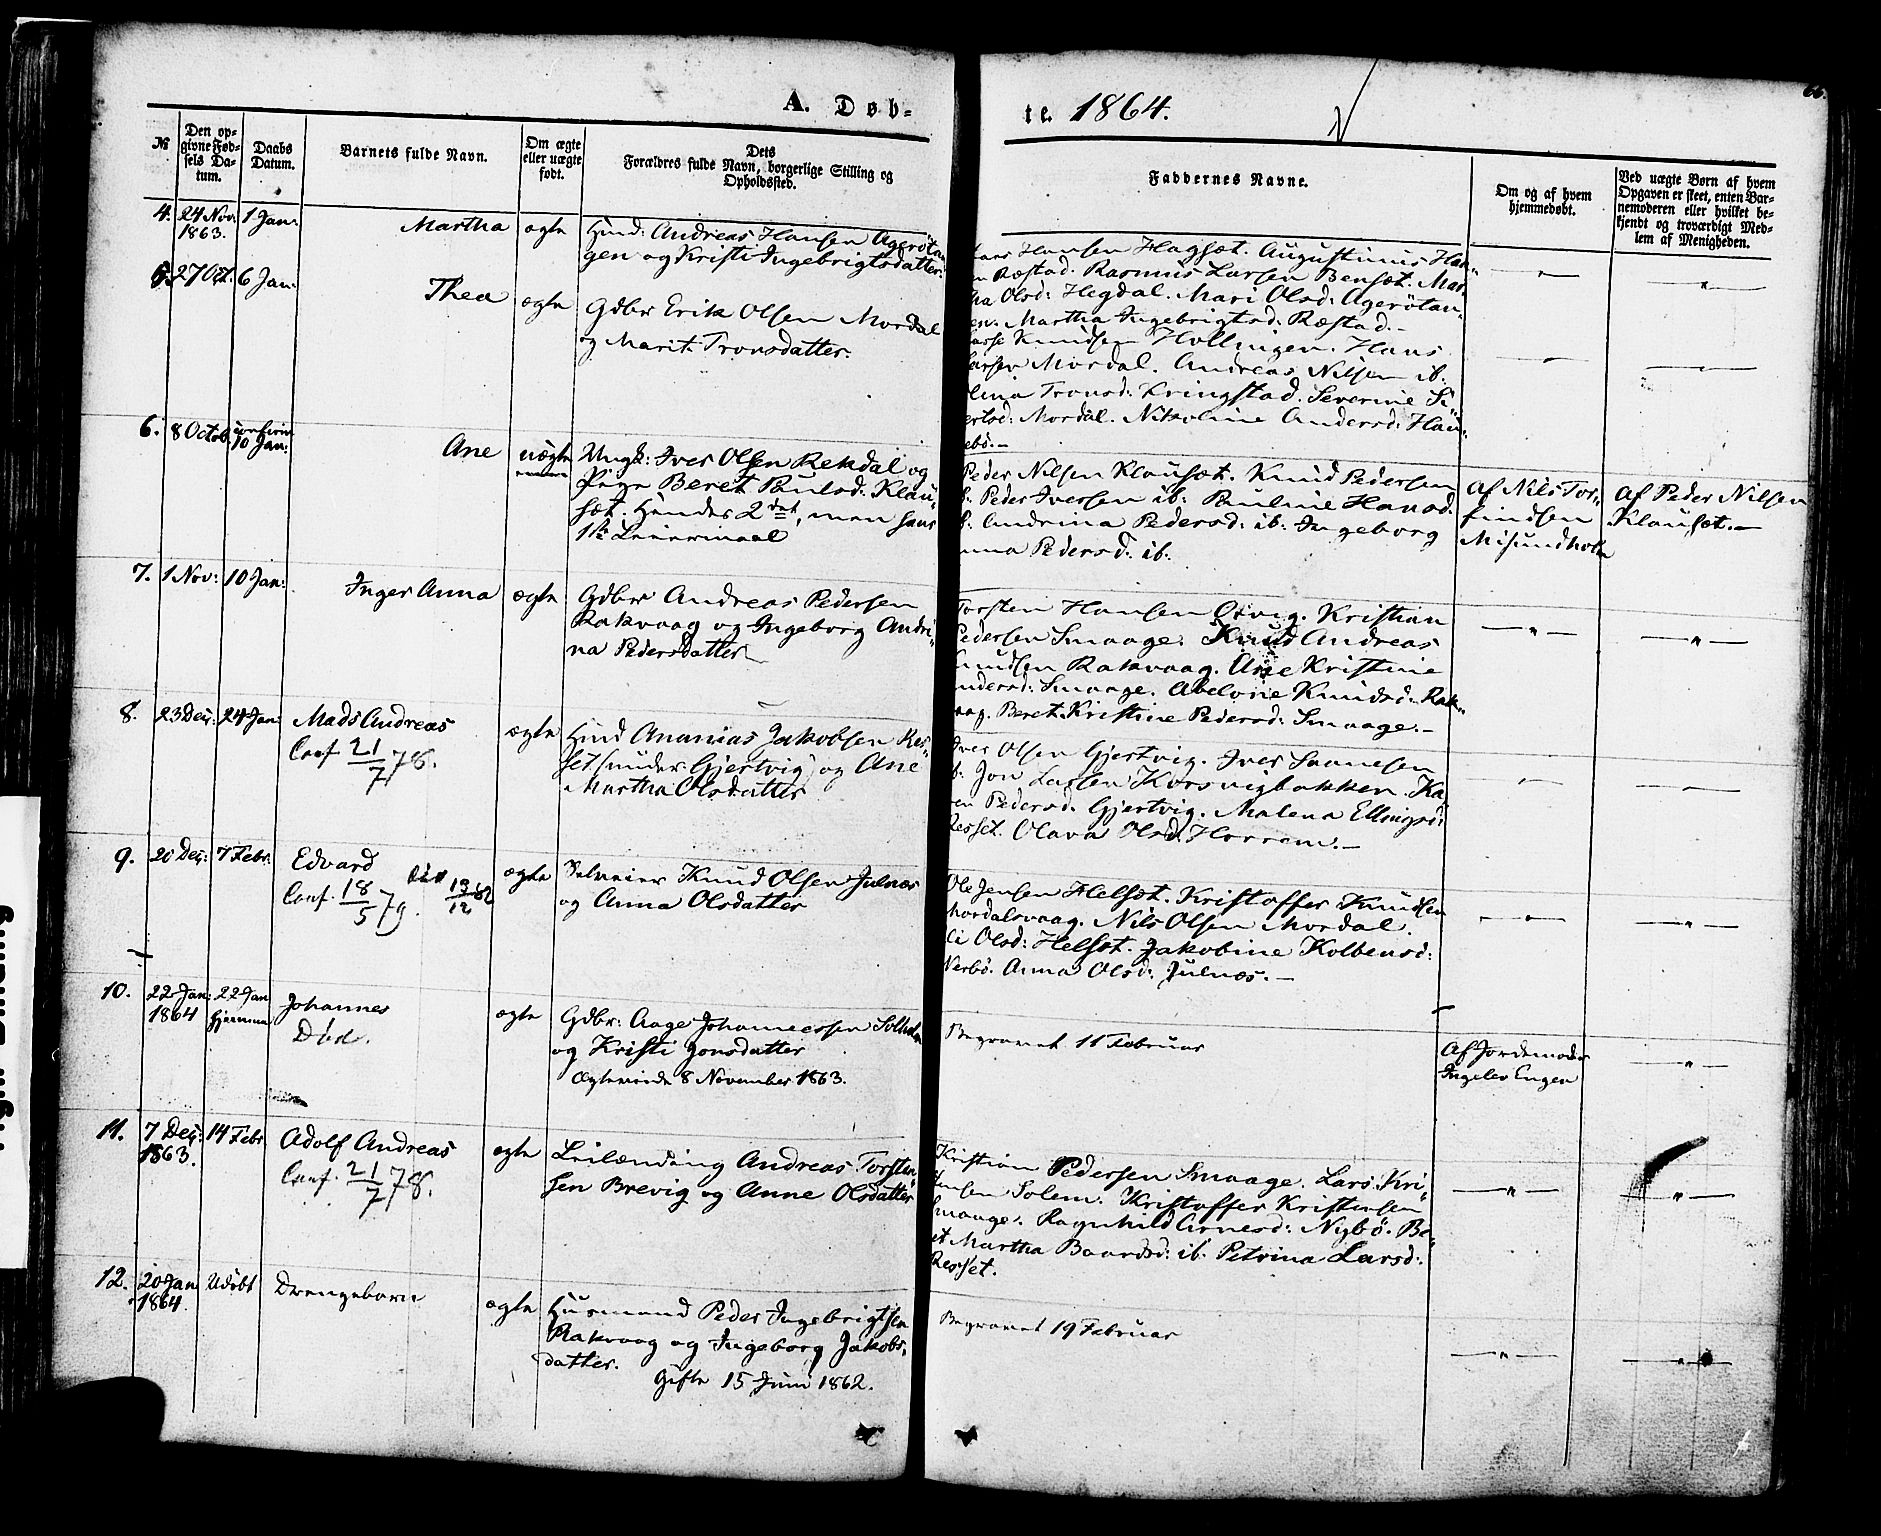 A. Døb-
te. 1864.
66.
№
Den op-
givne Fød-
sels Da-
tum.
Daabs
Datum.
Barnets fulde Navn.
Om ægte
eller uægte
født.
Dets
Forældres fulde Navn, borgerlige Stilling og
Opholdssted.
Faddernes Navne.
Om og af hvem
hjemmedøbt.
Ved uægte Børn af hvem
Opgaven er skeet, enten Bar-
nemoderen eller hvilket be-
kjendt og troværdigt Med-
lem af Menigheden.
4. 24 Nov: 1 Jan: Martha ægte Huusd: Andreas Hansen Agerøtan
1863. gen og Kristi Ingebrigtsdatter.
Lars Hansen Hagset. Augustinus Han-
en Ræstad. Rasmus Larsen Bensæt. Mar
ha Olsd: Hegdal. Mari Olsd: Agerötan
en. Martha Ingebrigtsd: Ræstad.-
5. 27 Oct. 6 Jan: Thea ægte Gdbr Erik Olsen Mordal
og Marit Tronsdatter.
Lasse Knudsen Hollingen. Hans
Larsen Mordal. Andreas Nilsen ib.
lina Tronsd: Kringstad. Severine Si
ertsd: Mordal. Nikoline Andersd: Hau-
ebö.-
6. 8 Octob. confirm Ane uægte Ungk: Iver Olsen Rekdal og
10 Jan: Pige Beret Paulsd: Klau-
set. Hendes 2det, men hans
1ste Leiermaal
Peder Nilsen Klauset. Knud Pedersen
ib: Peder Iversen ib: Pauline Hansd.
ib: Andrina Pedersd: ib: Ingeborg
Anna Pedersd: ib.
Af Nils Tor-
findsen
Misundholm
Af Peder Nilsen
Klauset.-
7. 1 Nov: 10 Jan: Inger Anna ægte Gdbr Andreas Pedersen
Rakvaag og Ingeborg Andri-
na Pedersdatter
Torsten Hansen Orvig. Kristian
Pedersen Smaage. Knud Andreas
Knudsen Rakvaag. Ane Kristine
Andersd: Smaage. Abelone Knudsd: Rak-
vaag. Beret Kristine Pedersd: Smaage.-
8. 23 Dec: 24 Jan Mads Andreas ægte Huusd Ananias Jakobsen Res-
Conf 21/7 78. set (under Gjertvig) og Ane
Martha Olsdatter
Iver Olsen Gjertvig. Iver Saanesen
ib. Jon Larsen Korsvigbakken. Ka
ren Pedersd. Gjertvig. Malena Ellingsd:
Resset. Olava Olsd. Horrem.-
9. 20 Dec: 7 Febr: Edvard ægte Selveier Knud Olsen Julnæs
Conf. 18/5 79. Död 13/12 82 og Anna Olsdatter
Ole Jensen Helset. Kristoffer Knudsen
Mordalsvaag. Nils Olsen Mordal.
li Olsd: Helset. Jakobine Kolbensd:
Nerbö. Anna Olsd: Julnæs.-
10. 22 Jan: 22 Jan Johannes ægte Gdbr: Aage Johannessen Solholm
1864 hjemme Död. og Kristi Jonsdatter
Ægteviede 8 November 1863.
Begravet 11 Februar
Af Jordemoder
Ingelev Engen
11. 7 Dec: 14 Febr Adolf Andreas ægte Leilænding Andreas Torsten-
1863. Conf. 21/7 78. sen Brevig og Anne Olsdatter
Kristian Pedersen Smaage. Lars Kri-
stensen Solem. Kristoffer Kristensen
Smaage. Ragnhild Arnesd: Nigbö. Be-
et Martha Baardsd: ib: Petrina Larsd:
Resset.
12. 20 Jan Udöbt Drengebarn ægte Huusmand Peder Ingebrigtsen
1864. Rakvaag og Ingeborg Jakobs-
datter.
Gifte 15 Juni 1862.
Begravet 19 Februar